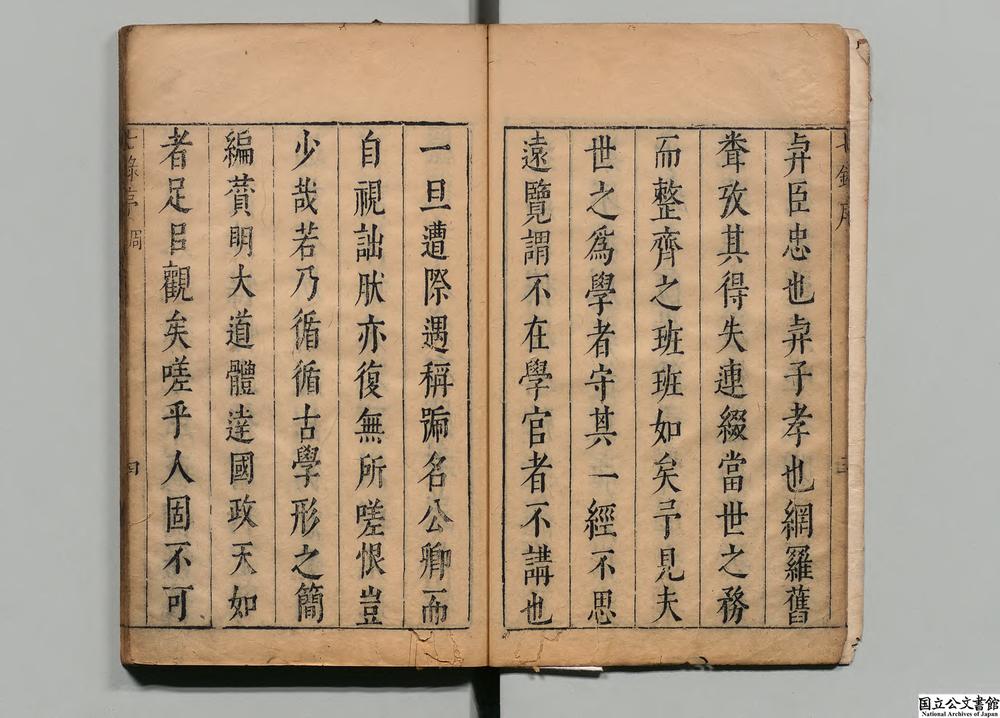 七錄序 三
𢌱臣忠也𢌱子孝也網羅舊
攷其得失連綴當世之務
而整齊之班班如矣予見夫
世之爲學者守其一經不思
遠覽謂不在學官者不講也
一旦遭際遇稱名公卿而
自視詘肰亦復無所嗟恨豈
少哉若乃循循古學形之簡
編蕡明大道體達國政天如
者足㠯觀矣嗟乎人固不可
七錄序 四
国立公文書館
National Archives of Japan